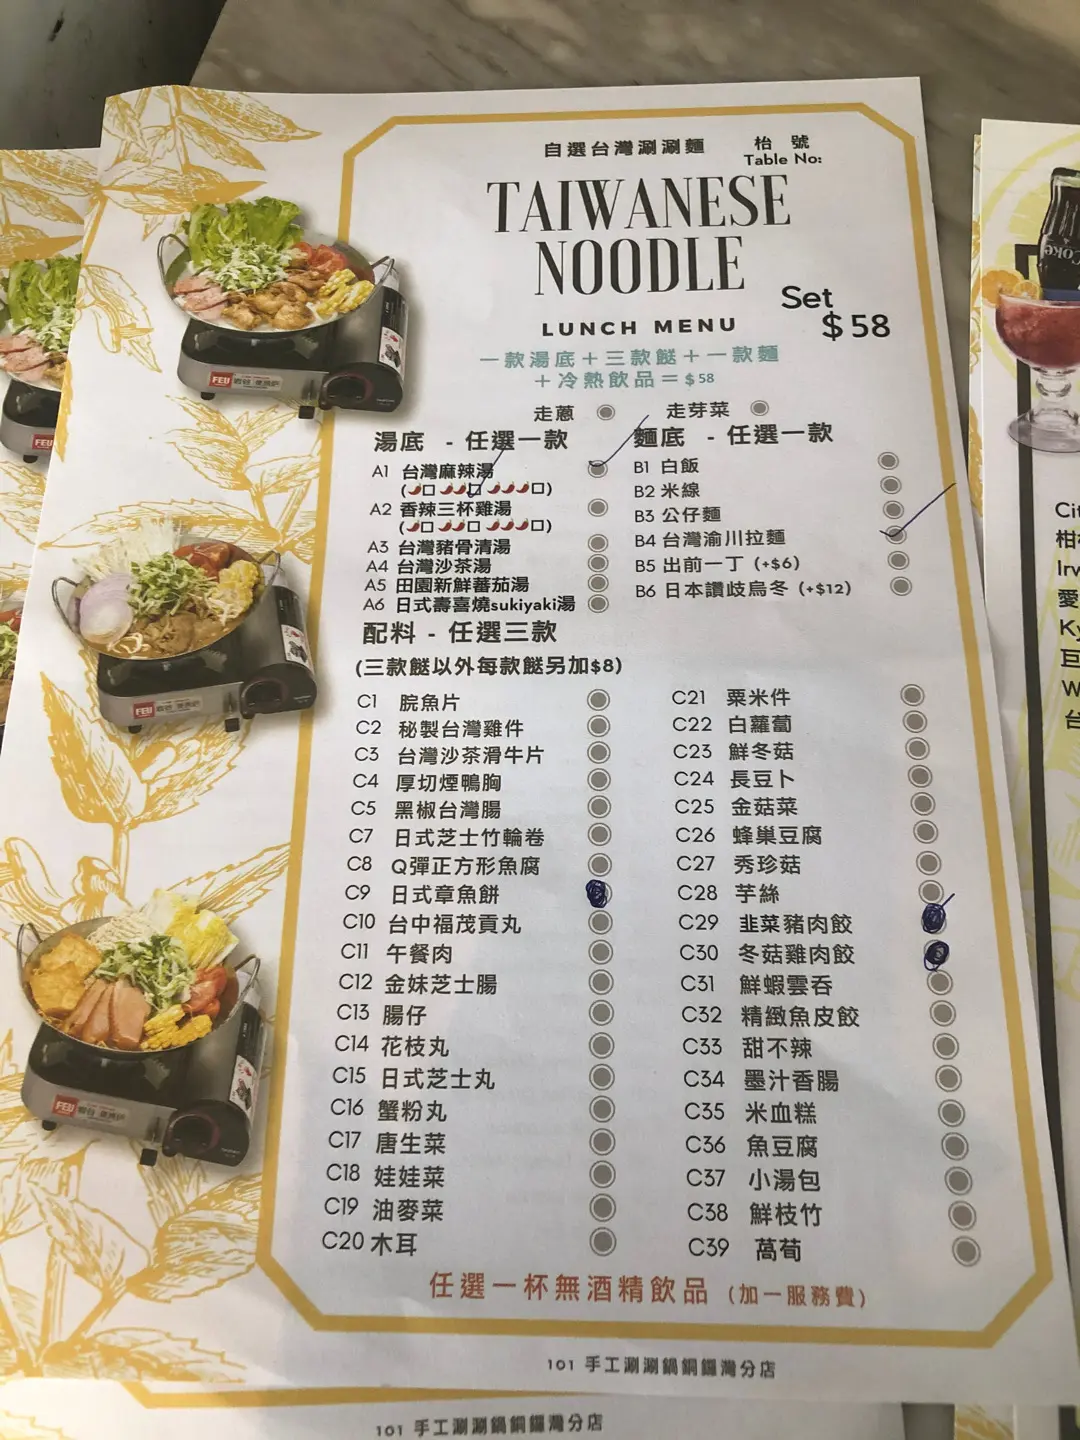 自選台灣涮涮麵
枱 號
Table No:
TAIWANESE
NOODLE
LUNCH MENU
Set
$58
一款湯底+三款餸+一款麵
+冷熱飲品=$58
走蔥
走芽菜
湯底 - 任選一款
A1 台灣麻辣湯
A2 香辣三杯雞湯
A3 台灣豬骨清湯
A4 台灣沙茶湯
A5 田園新鮮蕃茄湯
A6 日式壽喜燒sukiyaki湯
麵底 - 任選一款
B1 白飯
B2 米線
B3 公仔麵
B4 台灣渝川拉麵
B5 出前一丁 (+$6)
B6 日本讚岐烏冬 (+$12)
配料 - 任選三款
(三款餸以外每款餸另加$8)
C1 脘魚片
C2 秘製台灣雞件
C3 台灣沙茶滑牛片
C4 厚切煙鴨胸
C5 黑椒台灣腸
C7 日式芝士竹輪卷
C8 Q彈正方形魚腐
C9 日式章魚餅
C10 台中福茂貢丸
C11 午餐肉
C12 金妹芝士腸
C13 腸仔
C14 花枝丸
C15 日式芝士丸
C16 蟹粉丸
C17 唐生菜
C18 娃娃菜
C19 油麥菜
C20 木耳
C21 粟米件
C22 白蘿蔔
C23 鮮冬菇
C24 長豆卜
C25 金菇菜
C26 蜂巢豆腐
C27 秀珍菇
C28 芋絲
C29 韭菜豬肉餃
C30 冬菇雞肉餃
C31 鮮蝦雲吞
C32 精緻魚皮餃
C33 甜不辣
C34 墨汁香腸
C35 米血糕
C36 魚豆腐
C37 小湯包
C38 鮮枝竹
C39 萵荀
任選一杯無酒精飲品 (加一服務費)
101 手工涮涮鍋銅鑼灣分店
101 手工涮涮鍋銅鑼灣分店
FEU
FEU
FEU
FEU
Coke
Cit
柑
Irw
愛
Ky
巨
W
台